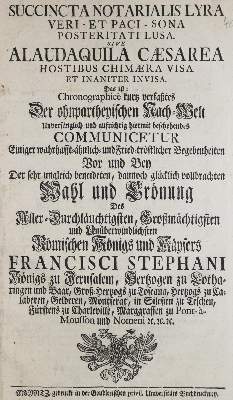 SUCCINCTA NOTARIALIS LYRA
VERI-ET PACI-SONA
POSTERITATI LUSA.
SIVE
ALAUDAQUILA CÆSAREA
HOSTIBUS CHIMÆRA VISA
ET INANITER INVISA.
Das ist:
Chronographicè kurtz verfaßtes
Der ohnpartheyischen Nach-Welt
unverfänglich und aufrichtig hiermit bescheidenes
COMMUNICETUR
Einiger wahrhafft-ähnlich-und Fried-tröstlicher Begebenheiten
Vor und Bey
Der sehr ungleich beneideten, dannoch glücklich vollbrachten
Wahl und Crönung
Des
Aller-Durchläuchtigsten, Großmächtigsten
und Unüberwindlichsten
Römischen Königs und Käysers
FRANCISCI STEPHANI
Königs zu Jerusalem, Hertzogen zu Lotha-
ringen und Baar, Groß-Hertzogs zu Toscana, Hertzogs zu Ca-
labrien, Geldern, Montferat, in Silesien zu Teschen,
Fürstens zu Charleville, Marggrafen zu Pont-à-
Mousson und Nomeni ꝛc. ꝛc. ꝛc.
gedruckt in der